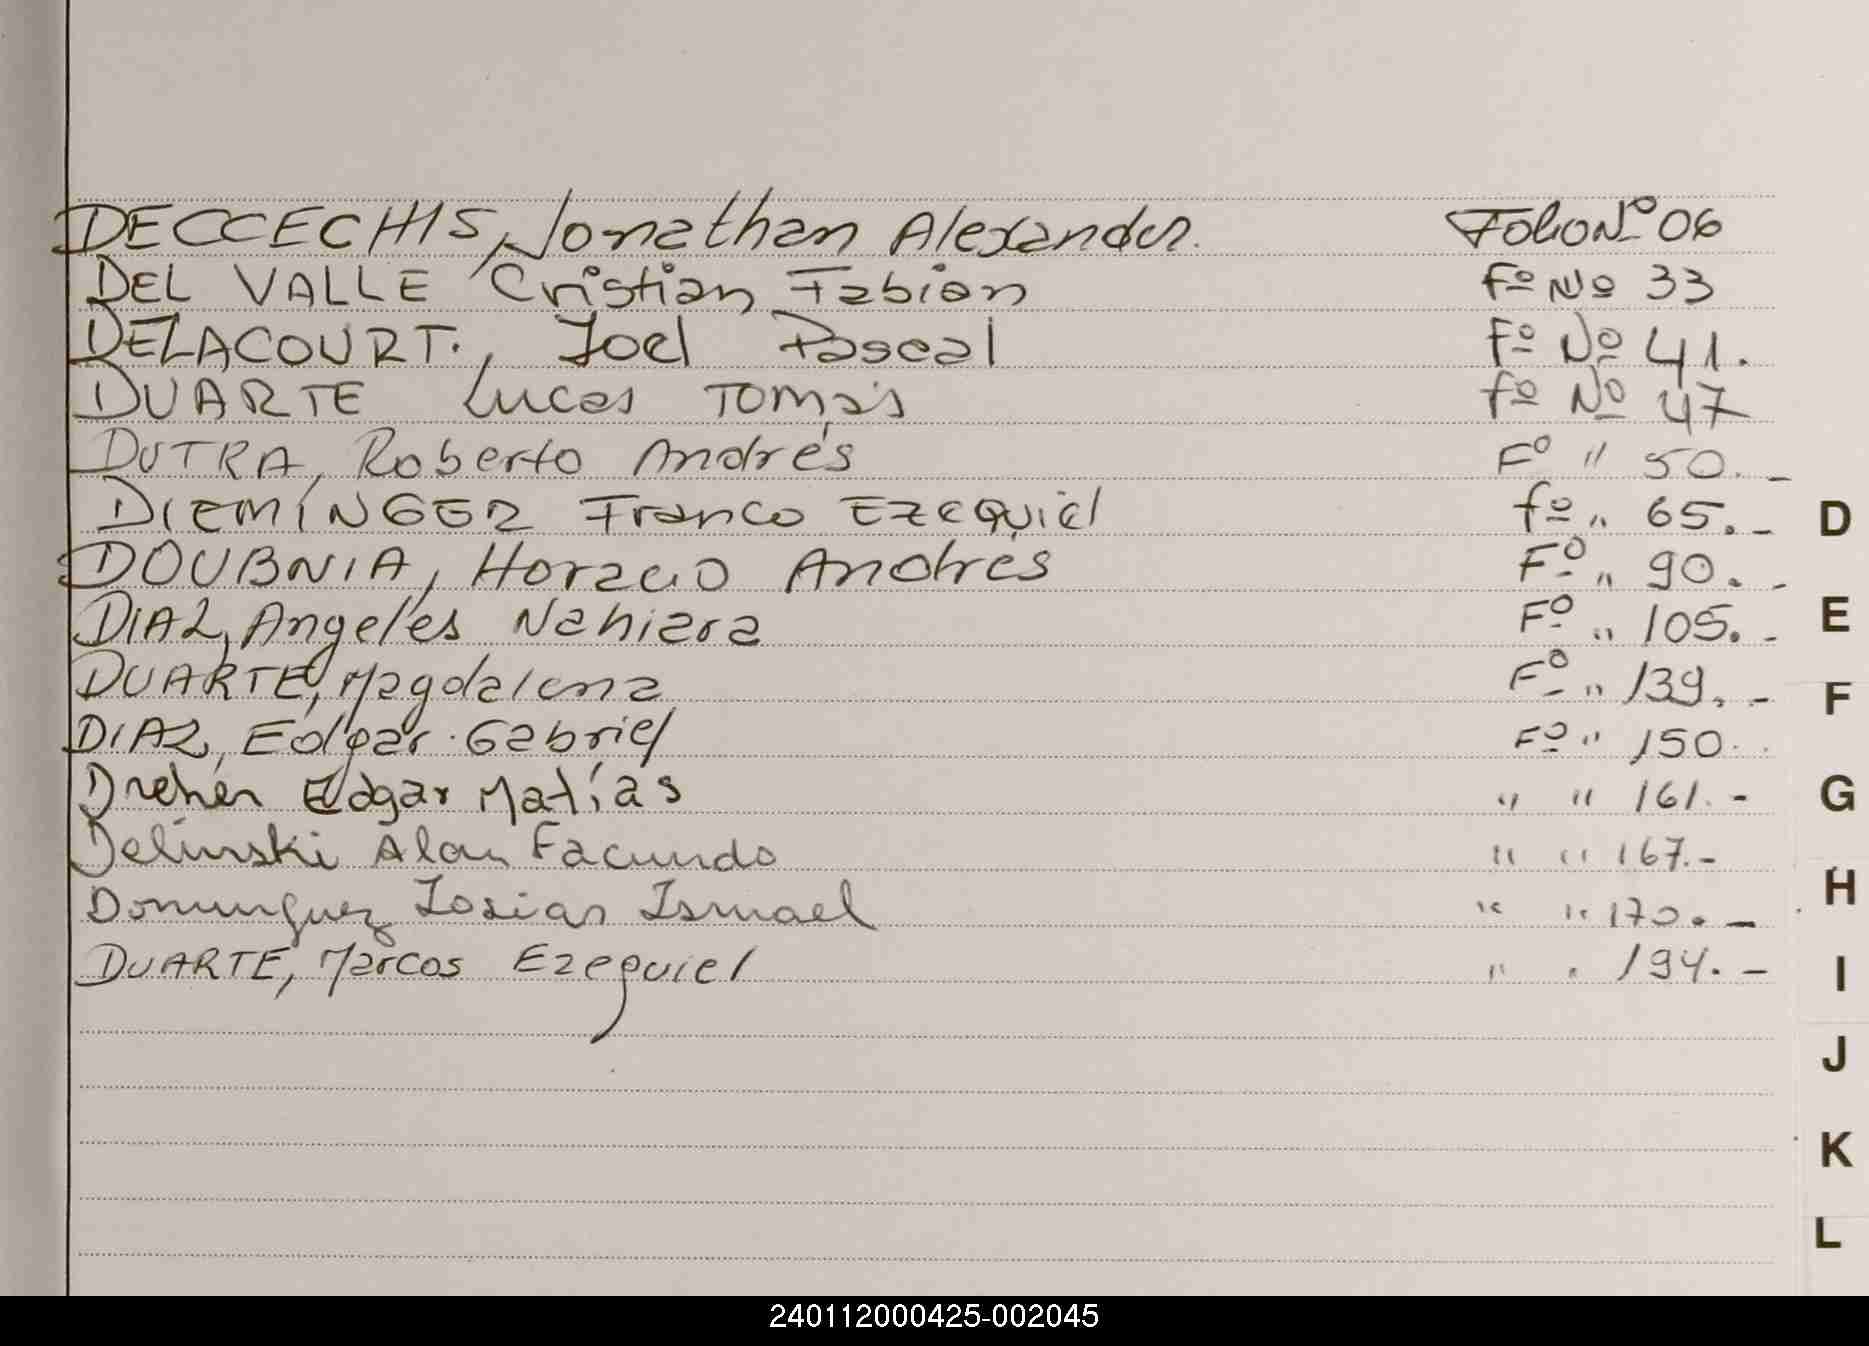 DECCECHIS, Jonathan Alexander. Folio Nº 06
DEL VALLE Cristian Fabian Fº Nº 33
DELACOURT., Joel Pascal Fº Nº 41.
DUARTE Lucas Tomás fº Nº 47
DUTRA, Roberto Andrés Fº " 50.-
DIEMINGER Franco Ezequiel fº " 65.-
DOUBNIA, Horacio Andrés Fº " 90.-
DIAZ, Angeles Nahiara Fº " 105.-
DUARTE, Magdalena Fº " 139.-
DIAZ, Edgar Gabriel Fº " 150.
Dreher Edgar Matías " " 161.-
Delinski Alan Facundo " " 167.-
Dominguez Josias Ismael " " 170.-
DUARTE, Marcos Ezequiel " " 194.-
D
E
F
G
H
I
J
K
L
240112000425-002045